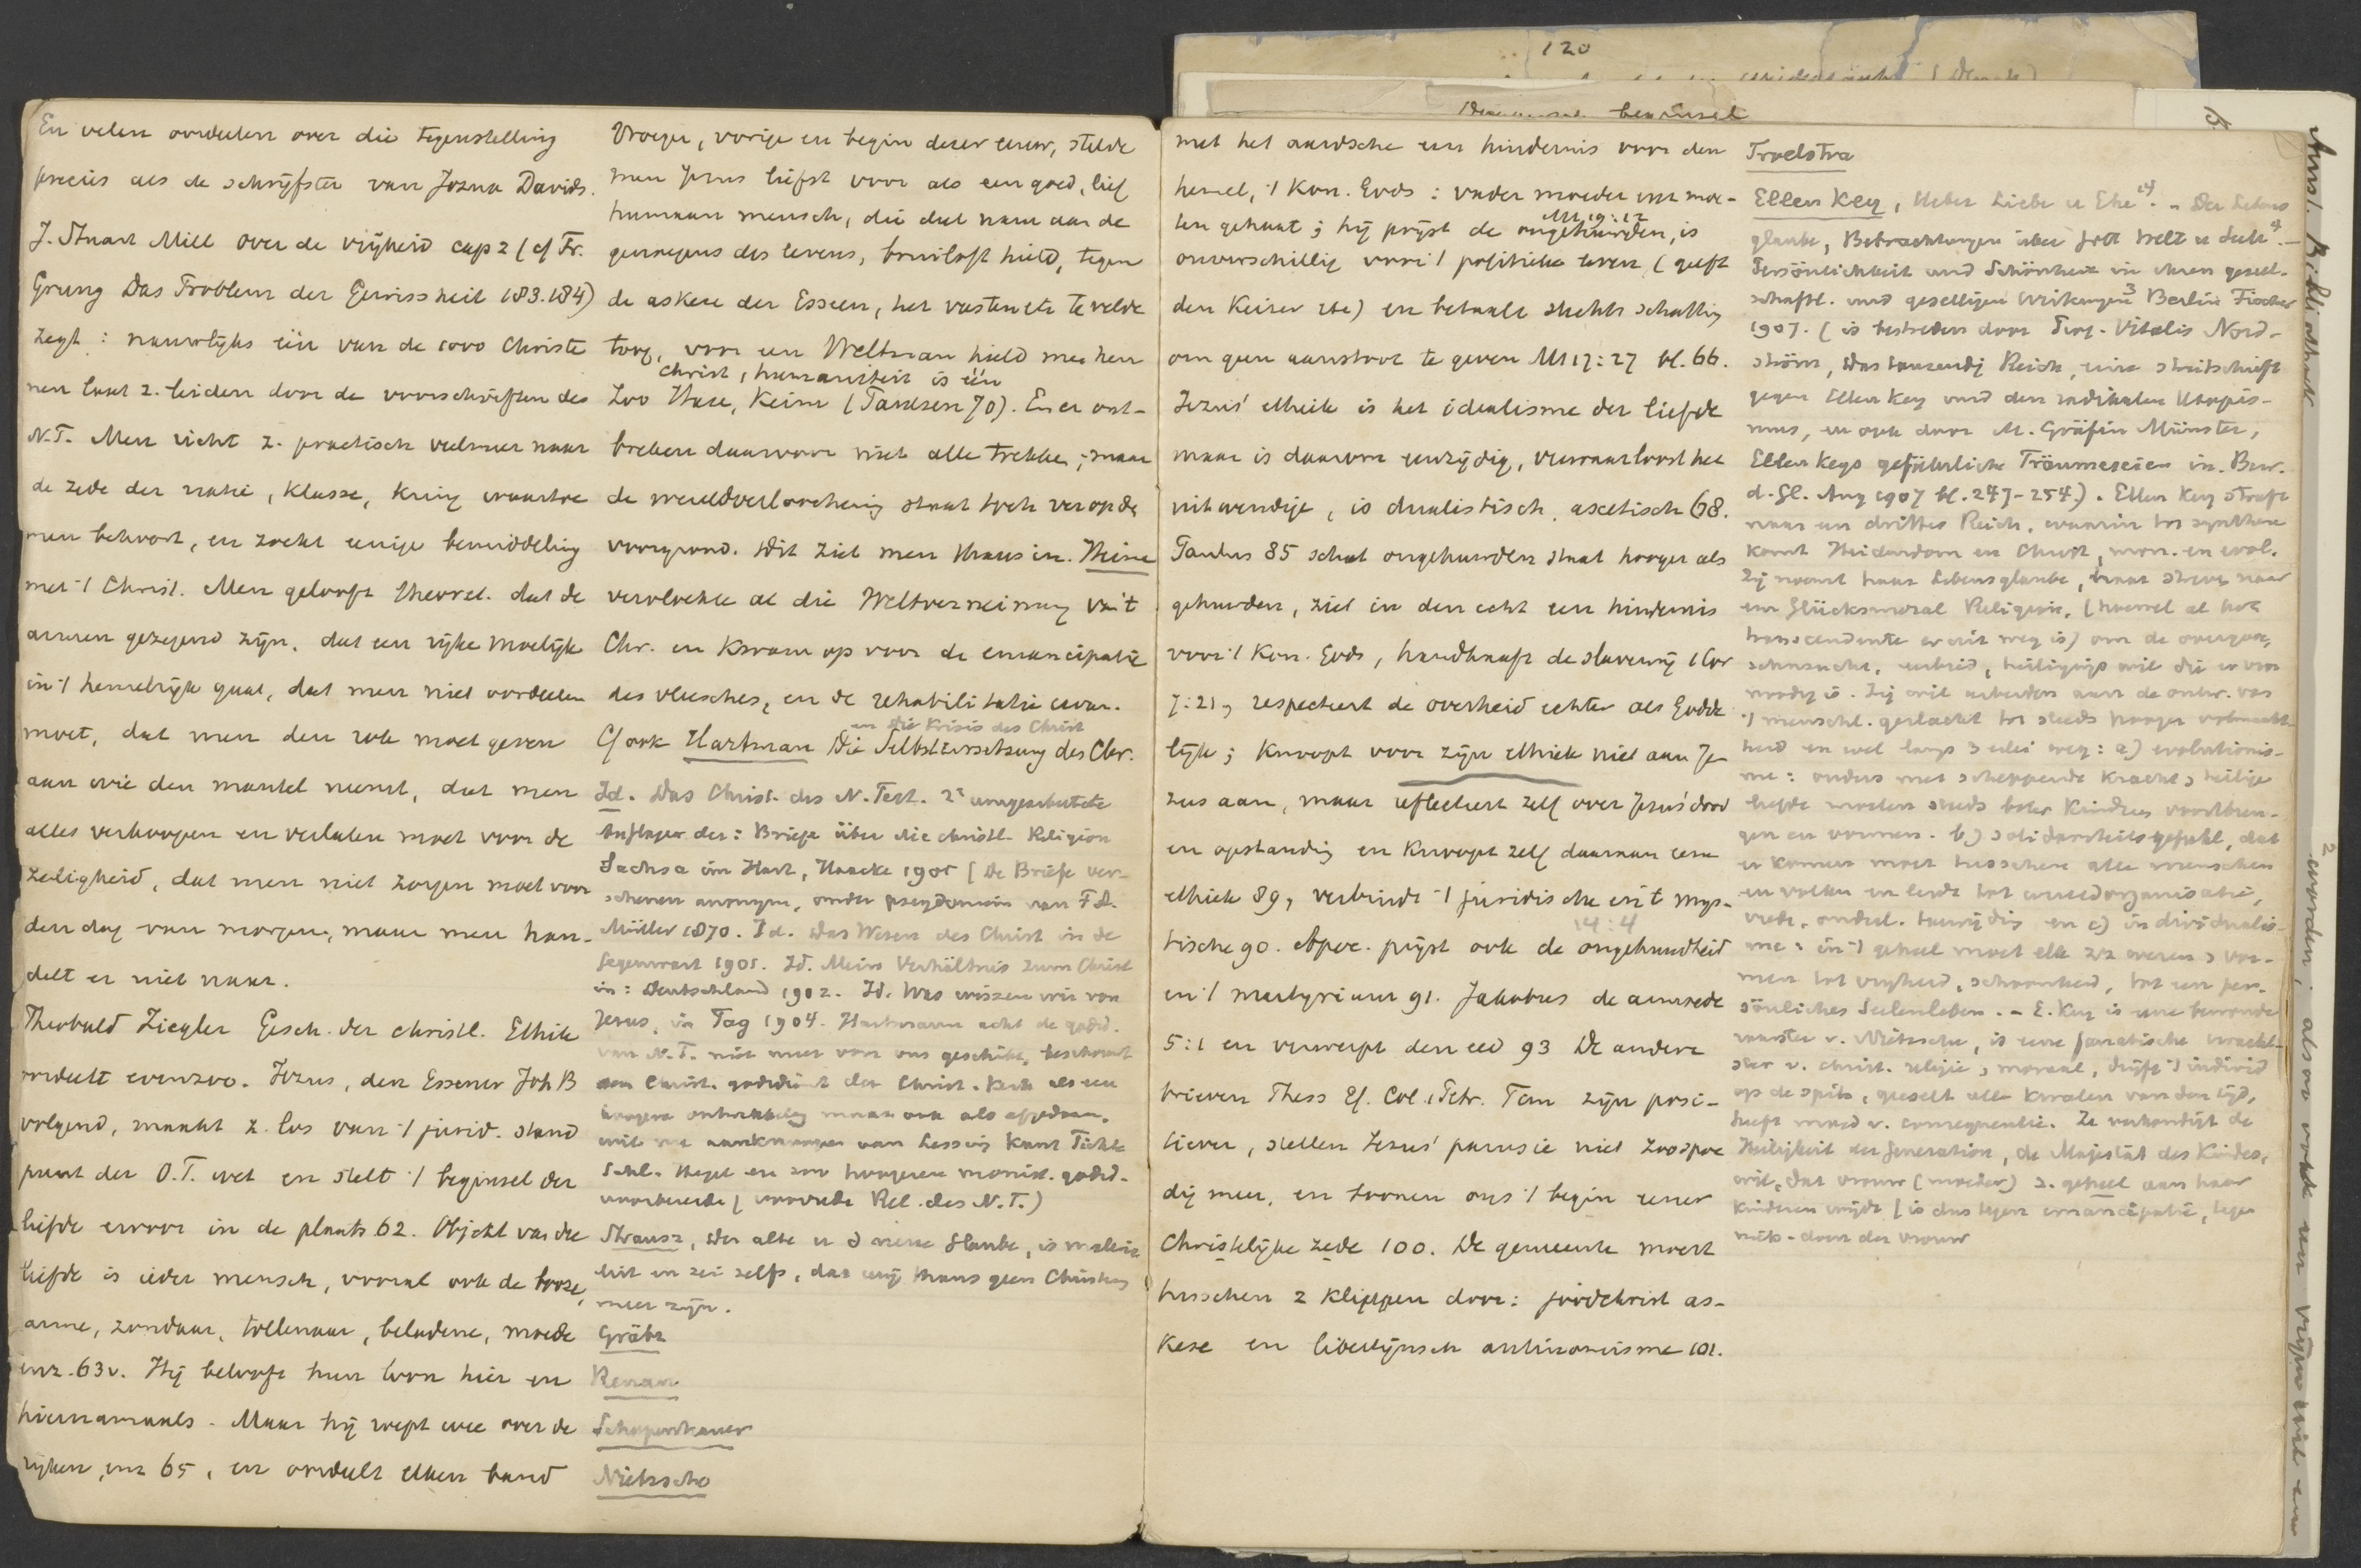 En velen oordeelen over die tegenstelling
precies als de schrijfster van Jozua Davids.
J. Stuart Mill over de vrijheid cap 2 (cf Fr.
Grung Das Problem der Gewissheit 183.184)
zegt: nauwlijks één van de 1000 Christe
nen laat z. leiden door de voorschriften des
N.T. Men richt z. practisch veelmeer naar
de zede der natie, klasse, kring waartoe
men behoort, en zoekt eenige bemiddeling
met 't Christ. Men gelooft theoret. dat de
armen gezegend zijn, dat een rijke moeilijk
in 't hemelrijk gaat, dat men niet oordeelen
moet, dat men den rok moet geven
aan wie den mantel neemt, dat men
alles verkoopen en verlaten moet voor de
zaligheid, dat men niet zorgen moet voor
den dag van morgen, maar men han-
delt er niet naar.
Theobald Ziegler Gesch. der christl. Ethik
oordeelt evenzoo. Jezus, den Essener Joh B
volgend, maakt z. los van 't jurid. stand
punt der O.T. wet en stelt 't beginsel der
liefde ervoor in de plaats 62. Objekt van die
liefde is ieder mensch, vooral ook de booze,
arme, zondaar, tollenaar, beladene, moede
enz. 63v. Hij belooft hun loon hier en
hiernamaals. Maar hij roept wee over de
rijken, enz 65, en oordeelt elken band
Vroeger, vorige en begin dezer eeuw, stelde
men Jezus liefst voor als een goed, lief
humaan mensch, die deel nam aan de
genoegens des levens, bruiloft hield, tegen
de askese der Esseen, het vasten etc te velde
toog, voor een Weltman hield men hem
Christ, humaniteit is één
Zoo Hase, Keim (Paulsen 70). En er ont-
breken daarvoor niet alle trekken; maar
de wereldverloochening staat toch ver op de
voorgrond. Dit ziet men thans in. Heine
vervloekte al die Weltverneinung van 't
Chr. en kwam op voor de emancipatie
des vleesches, en de rehabilitatie ervan.
en die Krisis des Christ
Cf ook Hartman Die Selbstzersetzung des Chr.
Id. Das Christ. des N. Test. 2e umgearbeitete
Auflage der: Briefe über die christl. Religion
Sachsa im Harz, Haacke 1905 [De Briefe ver-
schenen anonym, onder pseydoniem van F.A.
Müller 1870. Id. Das Wesen des Christ in de
Gegenwart 1905. Id. Mein Verhältnis zum Christ
in: Deutschland 1902. Id. Was wissen wir von
Jesus, in Tag 1904. Hartmann acht de godsd.
van N.T. niet meer voor ons geschikt, beschouwt
godsdienst der Christ. kerk als een
hoogere ontwikkeling maar ook als afgedaan,
wil aanknoopen aan Lessing Kant Fichte
Schl. Hegel en zoo hoogeren monist. godsd.
voorbereide (voorrede Rel. des N.T.)
Strausz, Der alte u d neue Glaube, is
uit en zei zelfs, dat wij thans geen Christen
meer zijn.
Grätz
Renan
Schopenhauer
Nietzsche
120
met het aardsche een hindernis voor den
hemel, 't Kon. Gods: vader moeder enz moe-
Mt 19:12
ten gehaat; hij prijst de ongehuwden, is
onverschillig voor 't politieke leven (geeft
den Keizer etc) en betaalt slechts schatting
om geen aanstoot te geven Mt 17:27 bl. 66.
Jezus' ethiek is het idealisme der liefde
maar is daarom eenzijdig, verwaarloost het
uitwendige, is dualistisch, ascetisch 68.
Paulus 85 schat ongehuwden staat hooger als
gehuwden, ziet in den echt een hindernis
voor 't Kon. Gods, handhaaft de slavernij 1 Cor
7:21, respecteert de overheid echter als Godde
lijk; knoopt voor zijn ethiek niet aan Je-
zus aan, maar reflecteert zelf over Jezus' dood
en opstanding en knoopt zelf daaraan eene
ethiek 89, verbindt 't juridische en 't mys-
14:4
tische 90. Apoc. prijst ook de ongehuwdheid
en 't martyrium 91. Jakobus de armoede
5:1 en verwerpt den eed 93 De andere
brieven Thess Ef. Col. 1 Petr. Tim zijn posi-
tiever, stellen Jezus' parusie niet zoo spoe
dig meer, en toonen ons 't begin eener
Christelijke zede 100. De gemeente moest
tusschen 2 klippen door: joodchrist as-
kese en libertijnsch antinomisme 101.
Troelstra
Ellen Key, Ueber Liebe u Ehe 14. - Der Lebens
glaube, Betrachtungen über Gott Welt u Seele 4. -
Persönlichkeit und Schönheit in ihren gesell-
schaftl. und geselligen Wirkungen 3 Berlin Fischer
1907. (is bestreden door Vitalis Nord-
ström, Das tausendj Reich, eine Streitschrift
gegen Ellen Key und den radikalen Utopis-
mus, en ook door M. Gräfin Münster,
Ellen Keys gefährliche Träumereien in Bew.
d. Gl. Aug 1907 bl. 247-254). Ellen Key streeft
naar een drittes Reich, waarin tot synthese
komt Heidendom en Christ, mon. en evol.
Zij noemt haar Lebensglaube, haar streven naar
een Glücksmoral Religion, (hoewel al het
transcendente er uit weg is) om de overgave,
sehnsucht, eerbied, heiligings wil die er voor
noodig is. Zij wil arbeiden aan de ontw. van
't menschl. geslacht tot steeds hooger volmaakt-
heid en wel langs 3 erlei weg: a) evolutionis-
me: ouders met scheppende kracht, heilige
liefde moeten steeds beter kinderen voortbren-
gen en vormen. b) solidariteitsgefühl, dat
er komen moet tusschen alle menschen
en volken en leide tot wereldorganisatie,
vrede, en c) individualis-
me: in 't geheel moet elk z/z wezen, vor-
men tot vrijheid, schoonheid, tot een per-
sönliches Seelenleben. - E. Key is eene bewonde
raarster v. Nietzsche, is eene fanatische
ster v. christ. religie, moraal, drijft 't individ
op de spits, geeselt alle kwalen van den tijd,
heeft moed v. consequentie. Ze verkondigt de
Heiligkeit der Generation, de Majestät des Kindes,
wil, dat vrouw (moeder) z. geheel aan haar
kinderen wijdt (is dus tegen emancipatie, tegen
der vrouw
Amst. Bibliotheek